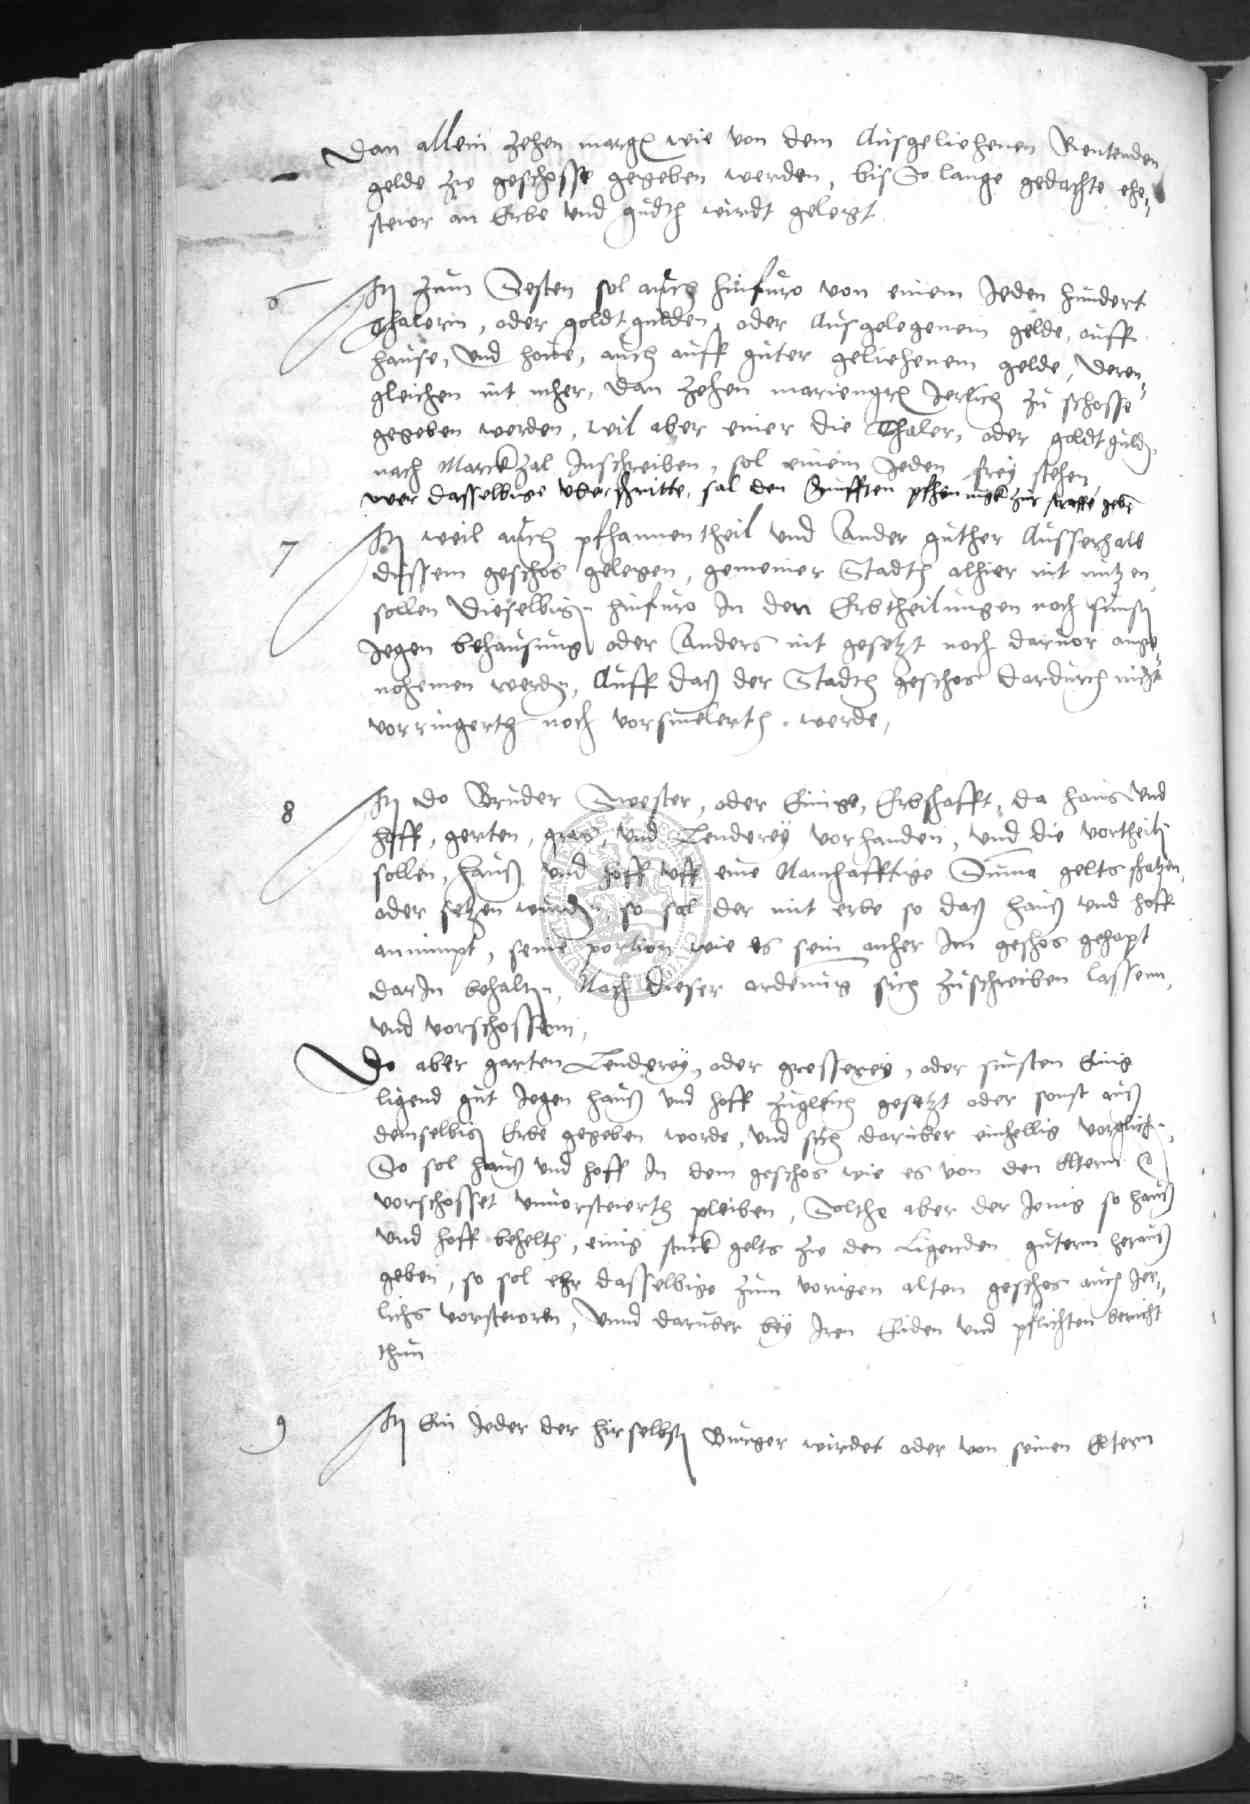 Dan allein zehen margr wie von dem Ausgeliehenen Rentenden
gelde zu geschosse gegeben werden, bis So lange gedachte ehe-
steur an Erbe und gudth wirdt gelegt
6 It zum Sesten sol auch hinfuro von einem Jeden hundert
Thalern, oder goldtgulden, oder Ausgelegenem gelde, auff
hause, und houe, auch auff guter geliehenem gelde, deren-
gleichen nit mher, dan zehen mariengr Jerlich zu schosse
gegeben werden, wil aber einer die Thaler, oder goldtguld
nach Marckzal Inschreiben, sol einem Jeden frey stehen,
wer dasselbige uberschritte, sal den funfften pfhennigk zur straffe geb
7 It weil auch pfhannentheil und Ander guther Ausserhalb
dussem geschos gelegen, gemeiner Stadth alhier nit nutzen
sollen dieselbig hinfuro In den Erbtheilungen noch sunst
Jegen behausung oder Anders nit gesetzt noch daruor ange-
nohemen werden, Auff daß der Stadth geschos dardurch nicht
vorringerth noch vorsmelerth werde,
8 It do Bruder Swester, oder Einige, Erbschafft, da haus und
hoff, gerten, graß, und Lenderey vorhanden, und die vortheil
sollen, hauß und hoff uff eine Namhafftige Suma gelts schatzen,
oder setzen wurden so sol der mit erbe so daß hauß und hoff
annimpt, seine portion wie es sein anher Im geschos gehapt
darIn behalten, Nach dieser ordenung sich zuschreiben lassenn,
und vorschossenn,
Do aber garten Lenderey, oder gresserey, oder sunsten Einig
ligend gut Jegen hauß und hoff zugleich gesetzt oder sonst auß
demselbig Erbe gegeben worde, und sich daruber einhellig vorglich,
So sol hauß und hoff In dem geschos wie es von den Eltern
vorschosset unuorsteuerth pleiben, Solthe aber der Jenig so hauß
und hoff behelth, einig stuck gelts zu den Ligenden gutern herauß
geben, so sol ehr dasselbige zum vorigen alten geschos auch Jer-
lichs vorsteuren, unnd daruber bey Iren Eiden und pflichten bericht
thun
9 It Ein Jeder der hirselbst Burger wirdet oder von seinen Eltern